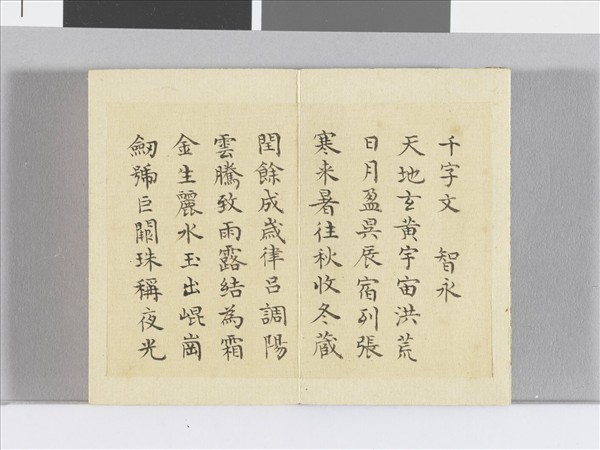 千字文 智永
天地玄黃宇宙洪荒
日月盈昃辰宿列張
寒来暑往秋收冬藏
閏餘成歲律呂調陽
雲騰致雨露結為霜
金生麗水玉出崐崗
劒號巨闕珠稱夜光